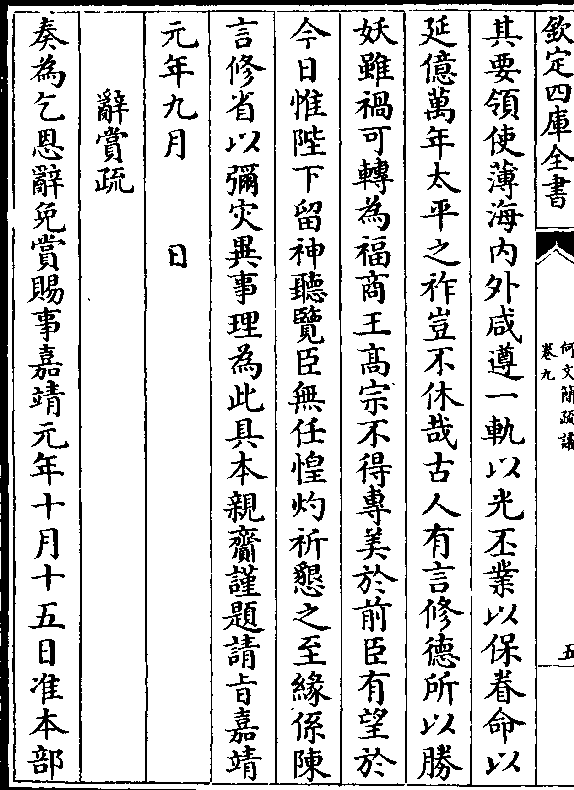 欽定四庫全書
何文簡疏議
卷九
五
其要領使薄海内外咸遵一軌以光丕業以保眷命以
延億萬年太平之祚豈不休哉古人有言修德所以勝
妖雖禍可轉為福商王髙宗不得專美於前臣有望於
今日惟陛下留神聽覽臣無任惶灼祈懇之至緣係陳
言修省以彌灾異事理為此具本親齎謹題請㫖嘉靖
元年九月　　日
辭賞疏
奏為乞恩辭免賞賜事嘉靖元年十月十五日准本部